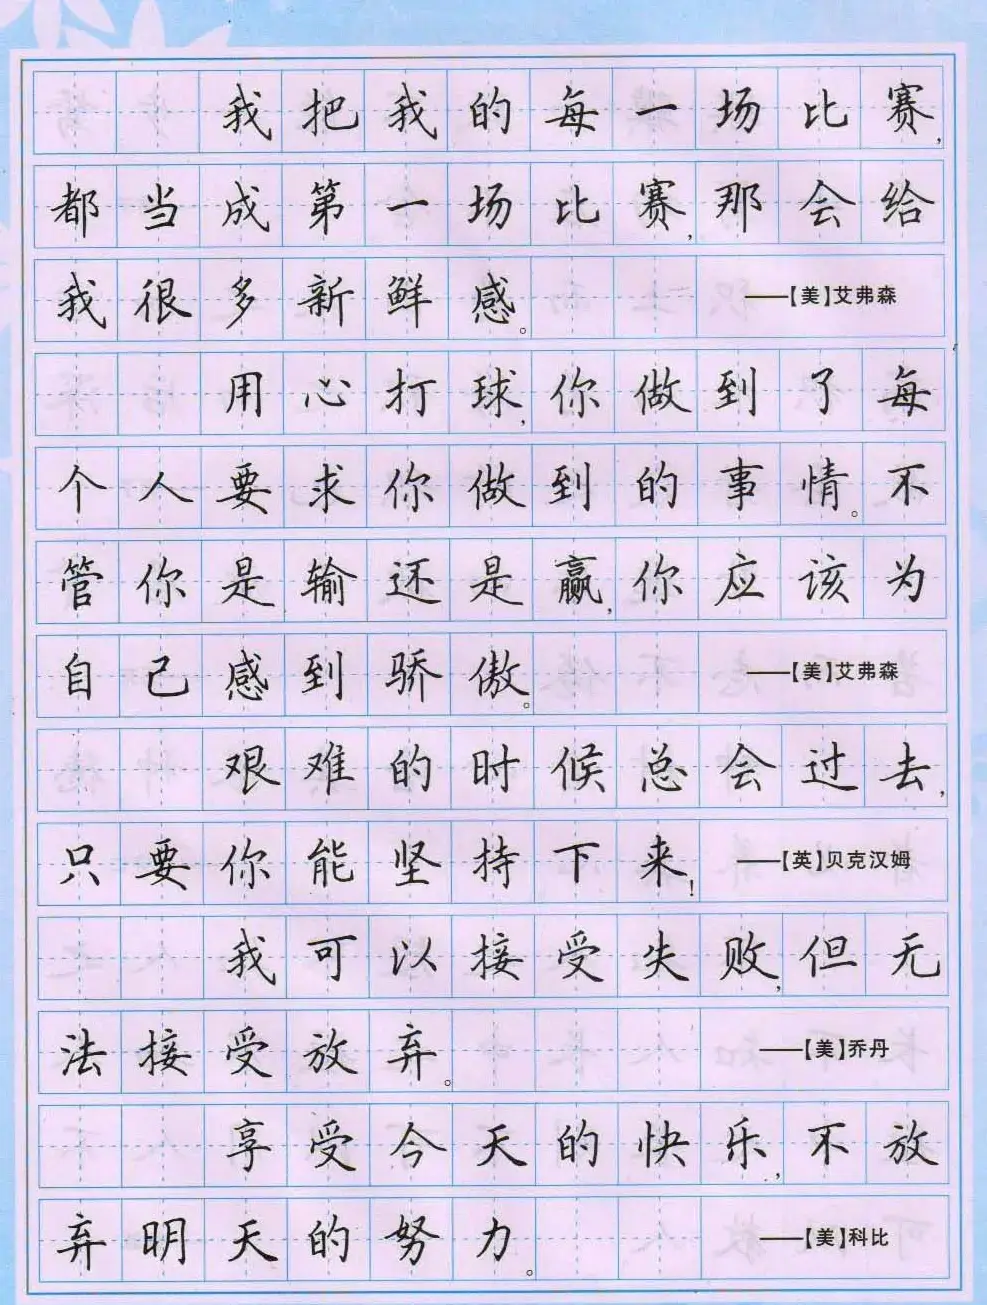 我把我的每一场比赛,
都当成第一场比赛,那会给
我很多新鲜感。——【美】艾弗森
用心打球,你做到了每
个人要求你做到的事情。不
管你是输还是赢,你应该为
自己感到骄傲。——【美】艾弗森
艰难的时候总会过去,
只要你能坚持下来!——【英】贝克汉姆
我可以接受失败,但无
法接受放弃。——【美】乔丹
享受今天的快乐,不放
弃明天的努力。——【美】科比